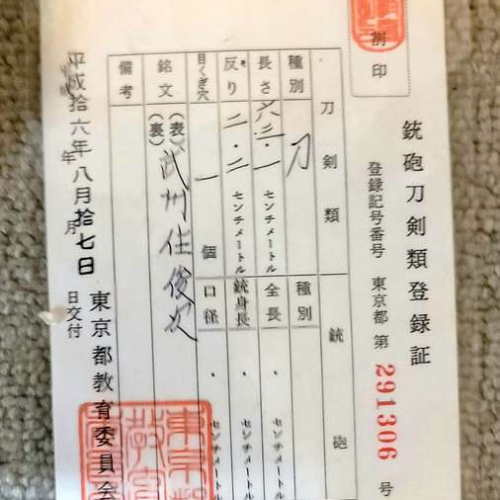 銃砲刀剣類登録証
割印
登録記号番号 東京都 第 291306 号
刀剣類
種別 刀
長さ 六三・一 センチメートル
反り 二・二 センチメートル
目くぎ穴 一 個
銘文 (表) 武州住俊次
(裏)
備考
銃砲
種別
全長 ・ センチメートル
銃身長 ・ センチメートル
口径 ・ センチメートル
平成拾六年八月拾七日
年 月 日交付
東京都教育委員会